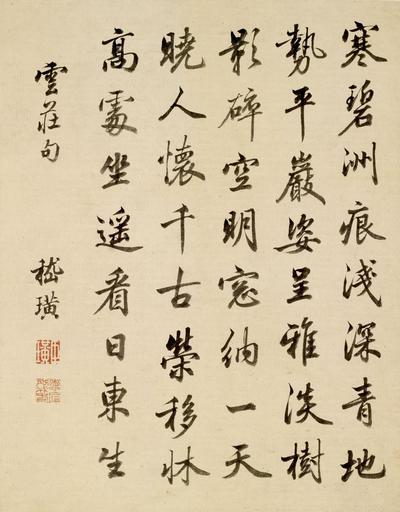 寒碧洲痕淺深青地
勢平巖姿呈雅淡樹
影碎空明窓納一天
曉人懷千古榮移牀
高處坐遥看日東生
雲莊句
嵇璜